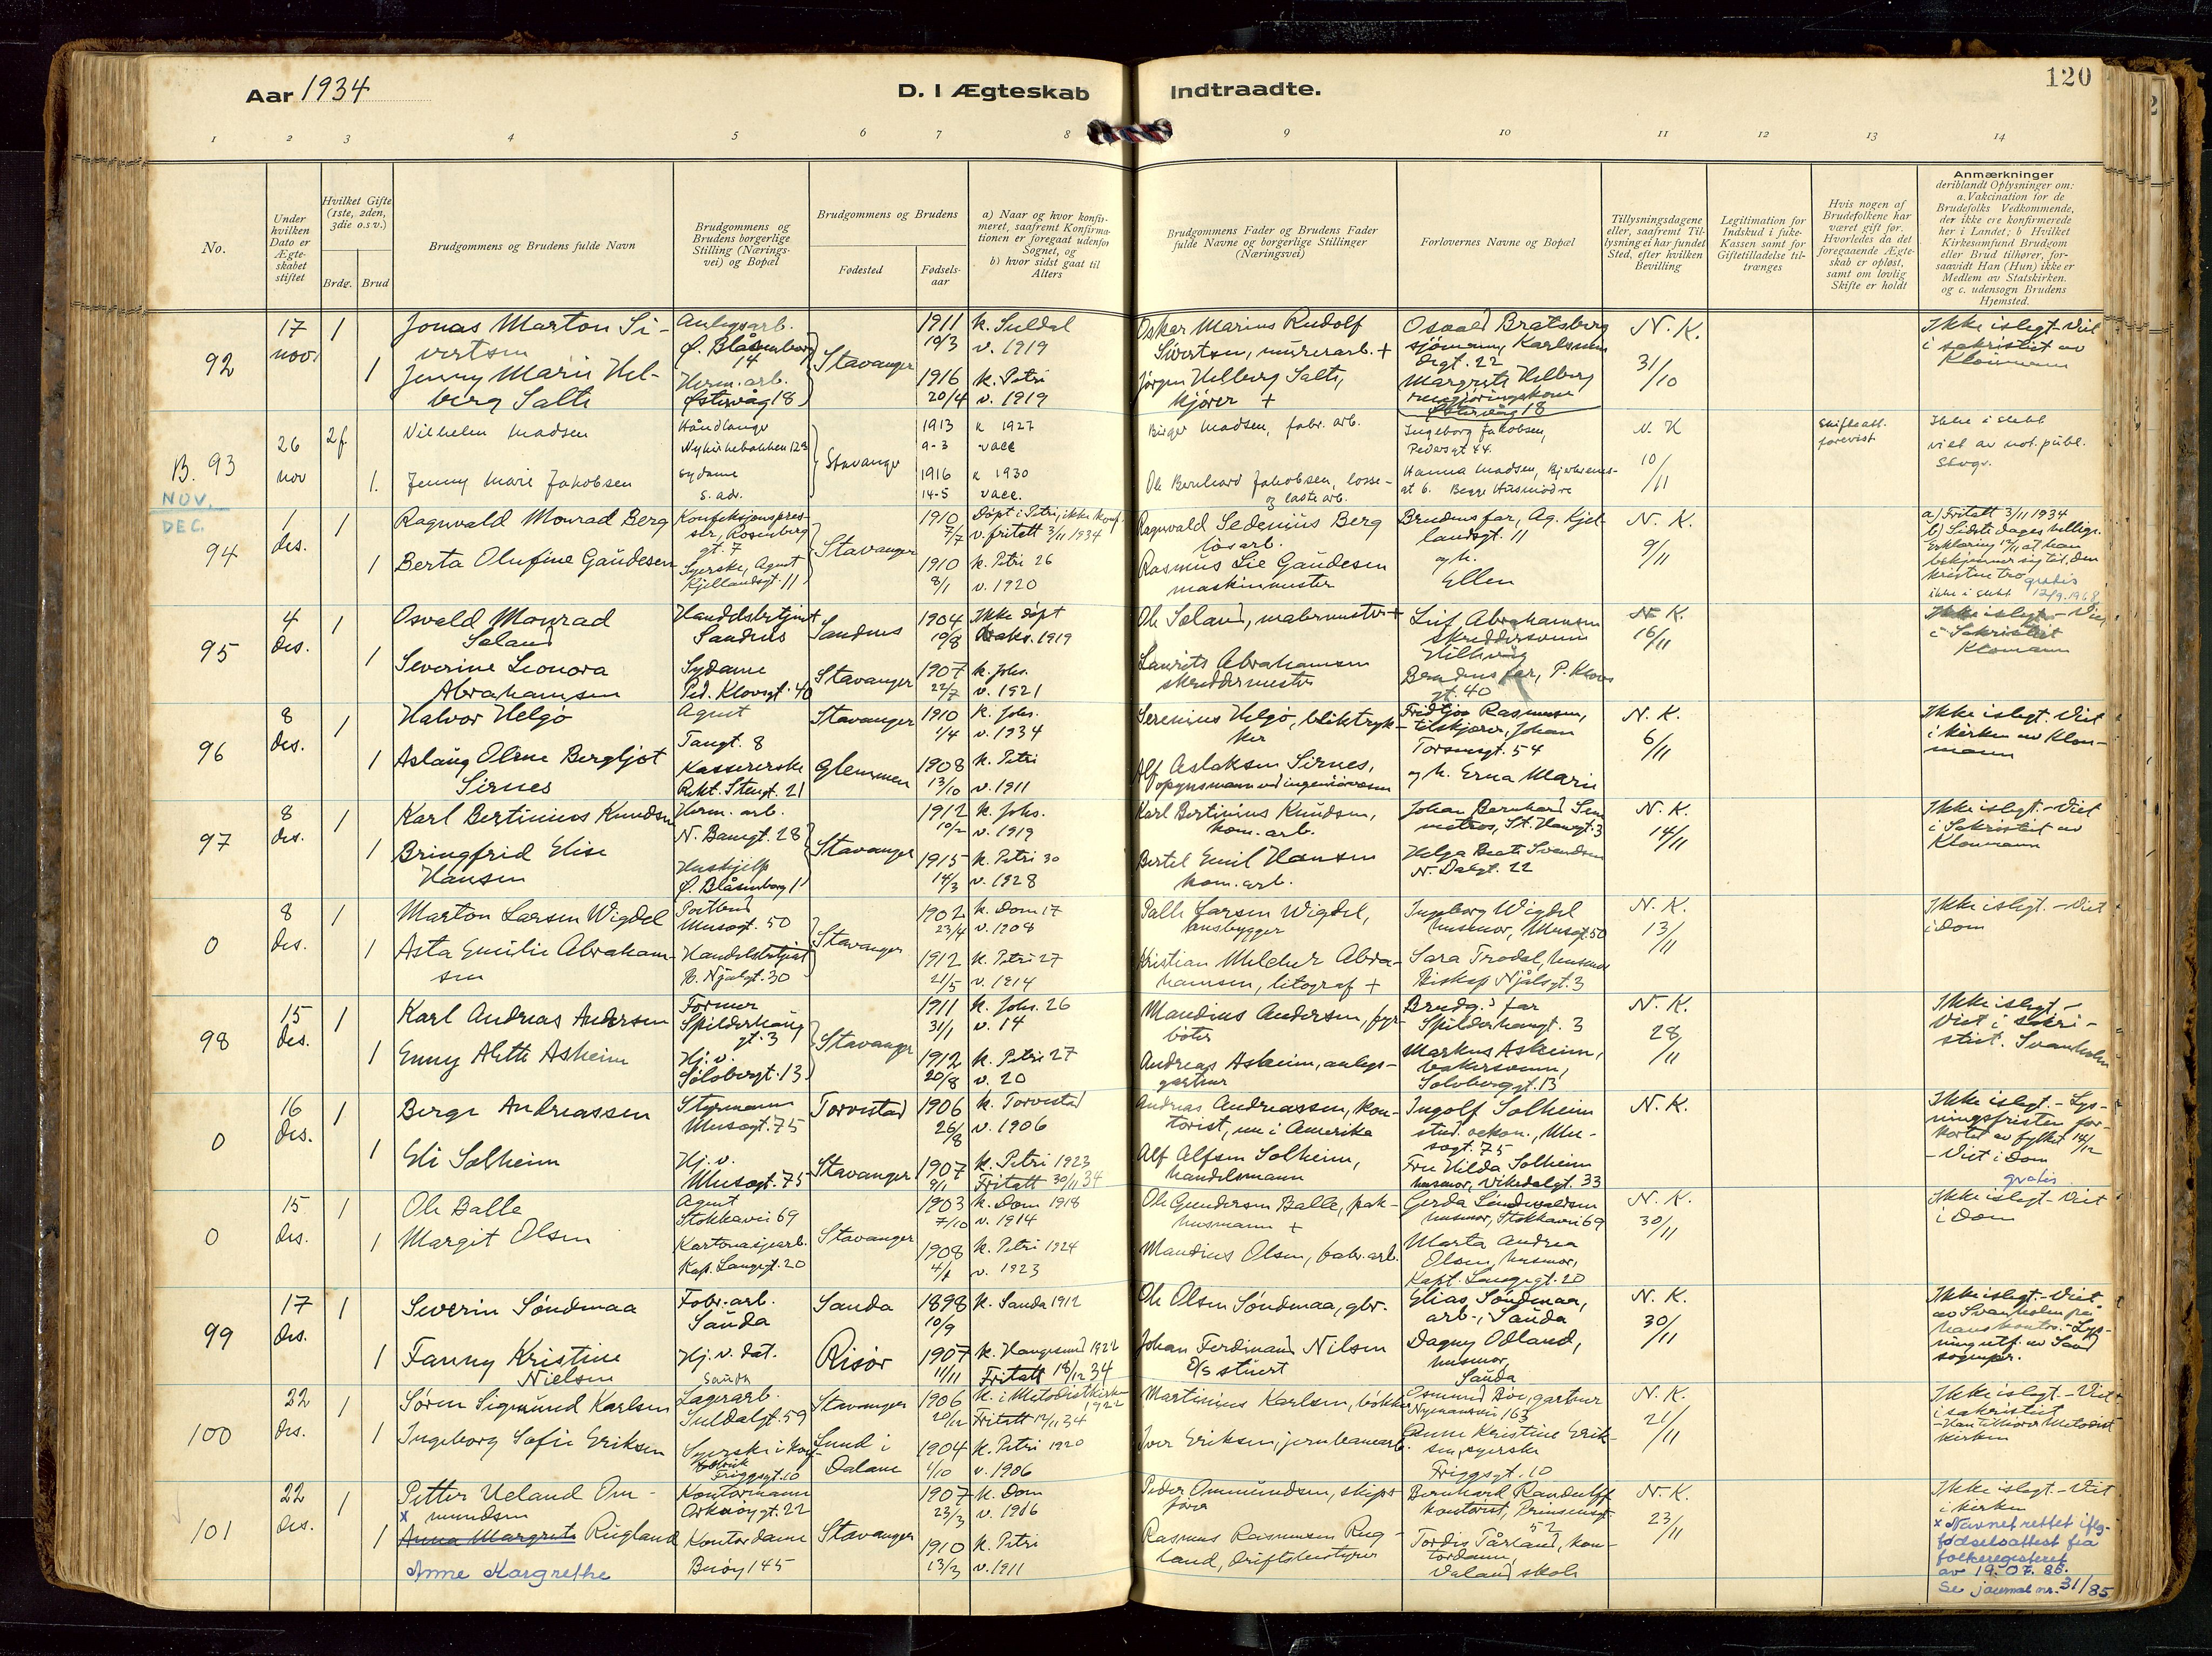 Aar 1934
D. I Ægteskab Indtraadte.
120
1 2 3 4 5 6 7 8 9 10 11 12 13 14
No.
Under hvilken Dato er Ægteskabet stiftet
Hvilket Gifte (1ste, 2den, 3die o.s.v.)
Brdg. Brud
Brudgommens og Brudens fulde Navn
Brudgommens og Brudens borgerlige Stilling (Næringsvei) og Bopæl
Brudgommens og Brudens
Fødested
Fødselsaar
a) Naar og hvor konfirmeret, saafremt Konfirmationen er foregaat udenfor Sognet, og b) hvor sidst gaat til Alters
Brudgommens Fader og Brudens Fader fulde Navne og borgerlige Stillinger (Næringsvei)
Forlovernes Navne og Bopæl
Tillysningsdagene eller, saafremt Tillysning ei har fundet Sted, efter hvilken Bevilling
Legitimation for Indskud i Enke-Kassen samt for Giftetilladelse tiltrænges
Hvis nogen af Brudefolkene har været gift før. Hvorledes da det foregaaende Ægteskab er opløst, samt om lovlig Skifte er holdt
Anmærkninger
deriblandt Oplysninger om: a. Vakcination for de Brudefolks Vedkommende, der ikke ere konfirmerede her i Landet; b Hvilket Kirkesamfund Brudgom eller Brud tilhører, forsaavidt Han (Hun) ikke er Medlem av Statskirken. og c. udensogn Brudens Hjemsted.
92 17 nov. 1 Jonas Marton Sivertsen Anlegsarb. Ø. Blåsenborg 14 Stavanger 1911 19/3 k. Suldal v. 1919 Oskar Marius Rudolf Sivertsen, murerarb. + Osvald Bratsberg sjømann N. K. 31/10 Ikke i slegt. Viet i sakristiet av
1 Jenny Marie Helberg Salte Herm. arb. Østervåg 18 1916 20/4 k. Petri v. 1919 Jørgen Helberg Salte, kjører + Margrete Helberg Østervåg 18
B. 93 26 nov 2 f. Vilhelm Madsen Håndlanger Nykirkebakken 123 Stavanger 1913 9-3 k 1927 vacc Birger Madsen, fabr. arb. Ingeborg Jakobsen, Pedersgt 44 N. K 10/11 Skifteatt. forevist Ikke i slekt viet av not. publ. Stvgr.
1. Jenny Marie Jakobsen Sydame s. adr. 1916 14-5 k 1930 vacc. Ole Bernhard Jakobsen, losse- og laste arb. Hanna Madsen, Begge Husmødre
NOV.
DEC.
94 1 des. 1 Ragnvald Monrad Berg Rosenberggt. 7 Stavanger 1910 7/7 Døpt i Petri, ikke konf. v. fritatt 3/11 1934 Ragnvald Sedenius Berg løsarb. Brudens far, Ag. Kjellandsgt. 11 N. K. 9/11 a) Fritatt 3/11 1934 b) Sidste dages hellige. Erklæring 12/11 at han bekjenner sig til den kristne tro
1 Berta Olufine Gaudesen Syerske, Agnet Kjellandsgt. 11 1910 8/1 k. Petri 26 v. 1920 Rasmus Lie Gaudesen maskinmester og h. Ellen gratis 12/9. 1968 ikke i slekt
95 4 des. 1 Osvald Monrad Soland Handelsbetjent Sandnes Sandnes 1904 19/8 Ikke døpt 1919 Ole Soland, malermester + Leif Abrahamsen skreddersvenn Hillevåg N. K. 16/11 Ikke i slegt - Viet i Sakristiet
1 Severine Leonora Abrahamsen Sydame Ped. Klowsgt. 40 Stavanger 1907 22/7 k. Johs. v. 1921 Laurits Abrahamsen skreddermester Brudens far, P. Klows gt. 40
96 8 des. 1 Halvor Helgø Agent Tangt. 8 Stavanger 1910 1/4 k. Johs. v. 1934 Serenius Helgø, bliktrykker Fridtjov Rasmussen, tilskjærer, Johan Torsensgt. 54 N. K. 6/11 Ikke i slegt. Viet i kirken
1 Aslaug Olene Bergljot Sirnes Kassererske Rekt. Stengt. 21 Glemmen 1908 13/10 k. Petri v. 1911 Alf Aslaksen Sirnes, og h. Erna Marie
97 8 des. 1 Karl Bertinius Knudsen Herm. arb. N. Bangt. 28 Stavanger 1912 10/2 k. Johs. v. 1919 Karl Bertinius Knudsen, kom. arb. Johan Bernhard N. K. 14/11 Ikke i slegt. - Viet i Sakristiet av
1 Bringfrid Elise Hansen Hushjelp Ø. Blåsenborg 11 1915 14/3 k. Petri 30 v. 1928 Bertel Emil Hansen kom. arb. Helga Beate Svendsen N. Dalgt. 22
0 8 des. 1 Marton Larsen Wigdel Postbud Musegt. 50 Stavanger 1902 23/4 k. Dom 17 v. 1908 Palle Larsen Wigdel, husbygger Ingeborg Wigdel husmor, Musegt. 50 N. K. 13/11 Ikke i slegt. - Viet i Dom
1 Asta Emilie Abrahamsen Handelsbetjent B. Njålsgt. 30 1912 21/5 k. Petri 27 v. 1914 Kristian Melcher Abrahamsen, litograf + Sara Trodal, husmor Biskop Njålsgt. 3
98 15 des. 1 Karl Andreas Andersen Former Spilderhauggt. 3 Stavanger 1911 31/1 k. Johs. 26 v. 14 Maudius Andersen, fyrbøter Brudg.s far Spilderhaugt. 3 N. K. 28/11 Ikke i slegt - Viet i sakristiet. Svanholm
1 Enny Alette Asheim Hj. v. Solvberggt. 13 1912 20/8 k. Petri 27 v. 20 Andreas Asheim, anlegsgartner Markus Asheim, bakersvenn, Solvberggt. 13
0 16 des. 1 Berge Andreassen Styrmann Musegt. 75 Torvestad 1906 26/8 k. Torvestad v. 1906 Andreas Andreassen, kontorist, nu i Amerika Ingolf Solheim stud. oekon., Musegt. 75 N. K. Ikke i slegt. - Lysningsfristen forkortet av fylket 14/12 - Viet i Dom
1 Eli Solheim Hj. v. Musegt. 75 Stavanger 1907 9/1 k. Petri 1923 Fritatt 30/11 34 Alf Alfsen Solheim, handelsmann Fru Hilda Solheim husmor, Vikedalgt. 33 gratis
0 15 des. 1 Ole Balle Agent Stokkavei 69 Stavanger 1903 7/10 k. Dom 1918 v. 1914 Ole Gundersen Balle, pakhusmann + Gerda husmor, Stokkavei 69 N. K. 30/11 Ikke i slegt - Viet i Dom
1 Margit Olsen Kartonasjearb. Kap. Langegt. 20 1908 4/1 k. Petri 1924 v. 1923 Maudius Olsen, fabr. arb. Marta Andrea Olsen, husmor, Kapt. Langegt. 20
99 17 des. 1 Severin Søndenaa Fabr. arb. Sauda Sauda 1898 10/9 k. Sauda 1912 Ole Olsen Søndenaa, gbr. Elias Søndenaa, arb., Sauda N. K. 30/11 Ikke i slegt. - Viet av Svanholm på hans kontor. - Lysning utf. av Sauda sognepr.
1 Fanny Kristine Nielsen Hj. v. dat. Sauda Risør 1907 11/11 k. Haugesund 1922 Fritatt 18/12 34 Johan Ferdinand Nilsen D/S stuert Dagny Odland, husmor, Sauda
100 22 des. 1 Søren Sigmund Karlsen Lagerarb. Suldalgt. 59 Stavanger 1906 20/12 k. i Metodistkirken 1922 Fritatt 12/11 34 Martinius Karlsen, bøkker Osmund Bøe, gartner Nymansvei 163 N. K. 21/11 Ikke i slegt. - Viet i sakristiet - Han tilhører Metodistkirken
1 Ingeborg Sofie Eriksen Syerske i konf. fabrik Friggsgt. 10 Lund i Dalane 1904 1/10 k. Petri 1920 v. 1906 Iver Eriksen, jernbanearb. Anne Kristine Eriksen, syerske Friggsgt. 10
101 22 des. 1 Petter Ueland Ommundsen Kontormann 22 Stavanger 1907 23/3 k. Dom v. 1916 Peder Ommundsen, skipsfører Bernhard Randulff kontorist, Prinsensgt. 52 N. K. 23/11 Ikke i slegt. - Viet i kirken
1 x Anna Margrete Rugland Kontordame Buøy 145 1910 13/3 k. Petri v. 1911 Rasmus Rasmussen Rugland, driftsbestyrer Tordis Tårland, kontordame, Våland skole
Anne Margrethe
x Navnet rettet iflg. fødselsattest fra folkeregisteret av 19.07.85. Se journal nr. 31/85